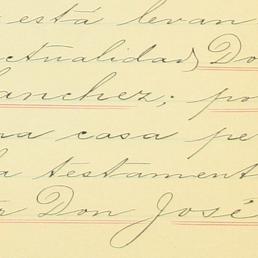 está levan
ctualidad) Do
anchez; po
na casa pe
a testament
r Don José